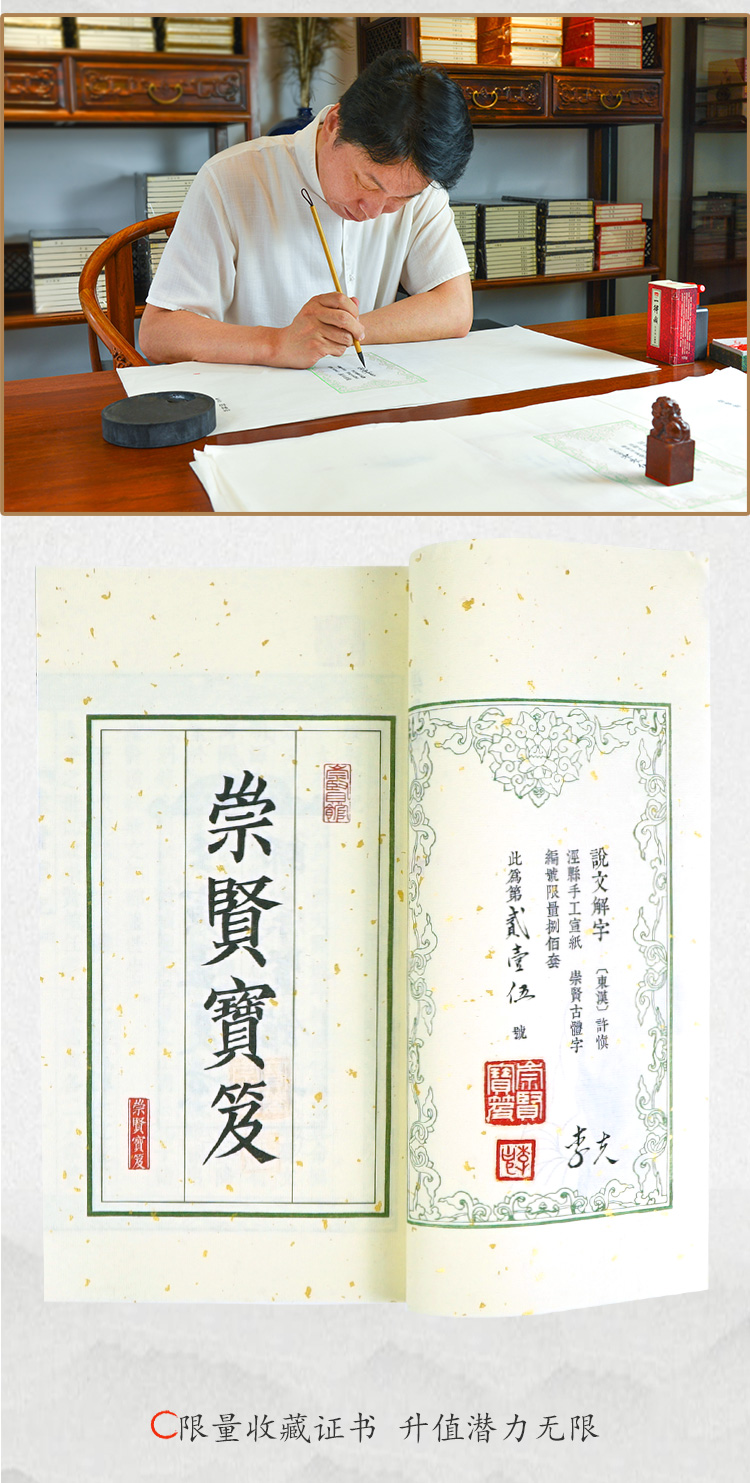 崇賢館
崇賢寶笈
崇賢寶笈
說文解字 〔東漢〕許慎
涇縣手工宣紙 崇賢古體字
編號限量捌佰套
此爲第貳壹伍號
崇賢寶笈
李克
限量收藏证书 升值潜力无限